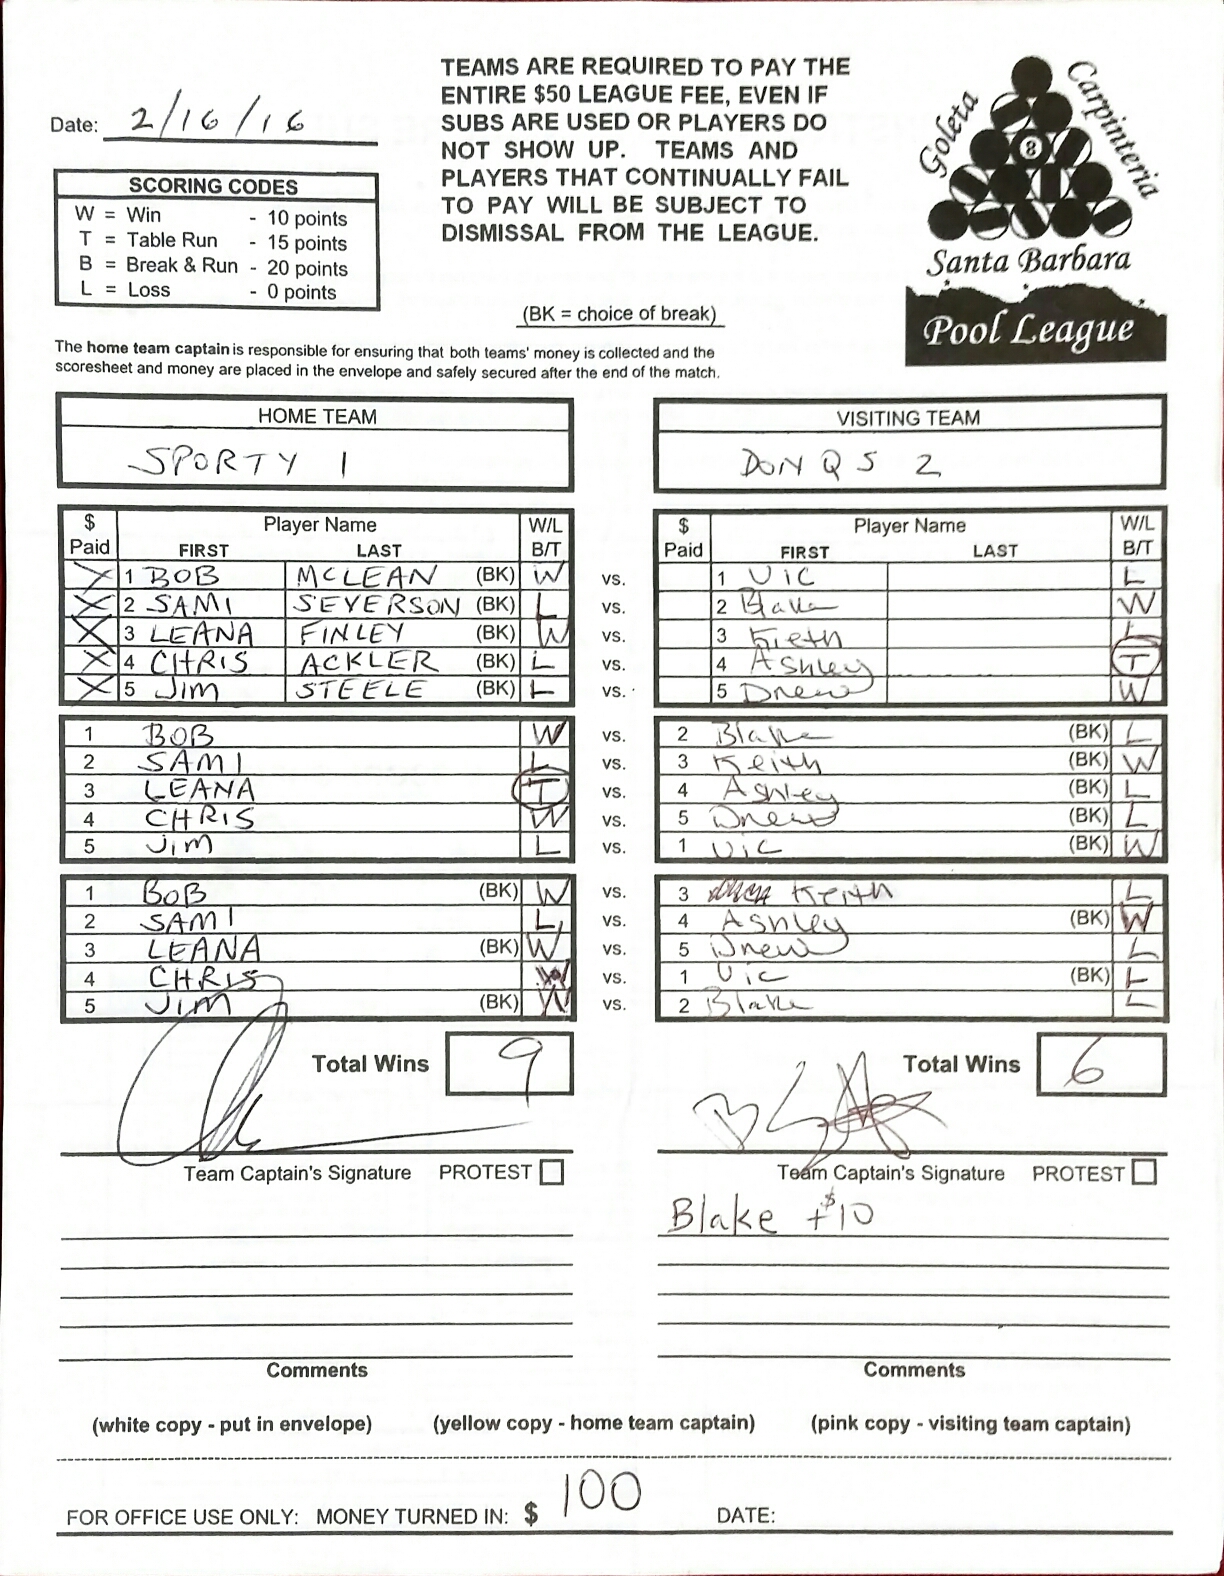 TEAMS ARE REQUIRED TO PAY THE
ENTIRE $50 LEAGUE FEE, EVEN IF
SUBS ARE USED OR PLAYERS DO
NOT SHOW UP. TEAMS AND
PLAYERS THAT CONTINUALLY FAIL
TO PAY WILL BE SUBJECT TO
DISMISSAL FROM THE LEAGUE.
Date: 2/16/16
SCORING CODES
W = Win - 10 points
T = Table Run - 15 points
B = Break & Run - 20 points
L = Loss - 0 points
Goleta
Carpinteria
8
Santa Barbara
Pool League
(BK = choice of break)
The home team captain is responsible for ensuring that both teams' money is collected and the
scoresheet and money are placed in the envelope and safely secured after the end of the match.
HOME TEAM VISITING TEAM
SPORTY 1 DON QS 2
$ Paid Player Name FIRST LAST W/L B/T $ Paid Player Name FIRST LAST W/L B/T
X 1 BOB MCLEAN (BK) W vs. 1 Vic L
X 2 SAMI SEVERSON (BK) L vs. 2 Blake W
X 3 LEANA FINLEY (BK) W vs. 3 Kieth L
X 4 CHRIS ACKLER (BK) L vs. 4 Ashley T
X 5 JIM STEELE (BK) L vs. 5 Drew W
1 BOB W vs. 2 Blake (BK) L
2 SAMI L vs. 3 Keith (BK) W
3 LEANA T vs. 4 Ashley (BK) L
4 CHRIS W vs. 5 Drew (BK) L
5 JIM L vs. 1 Vic (BK) W
1 BOB (BK) W vs. 3 Keith L
2 SAMI L vs. 4 Ashley (BK) W
3 LEANA (BK) W vs. 5 Drew L
4 CHRIS W vs. 1 Vic (BK) L
5 JIM (BK) W vs. 2 Blake L
Total Wins 9 Total Wins 6
Team Captain's Signature PROTEST Team Captain's Signature PROTEST
Blake +$10
Comments Comments
(white copy - put in envelope) (yellow copy - home team captain) (pink copy - visiting team captain)
FOR OFFICE USE ONLY: MONEY TURNED IN: $ 100 DATE: